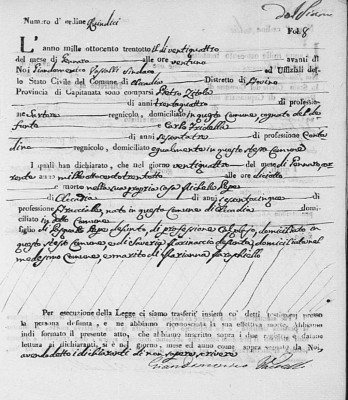 Numero d'ordine Quindici
Fol. 8
L'anno mille ottocento trentotto il di ventiquattro
del mese di Gennaro alle ore ventuno avanti di
Noi Giandomenico Sindaco ed Uffiziale del-
lo Stato Civile del Comune di Distretto di Bovino
Provincia di Capitanata sono comparsi Pietro
di anni trentaquattro di professio-
ne regnicolo, domiciliato in questo Comune, cognato del de-
funto e Carlo
di anni sessantatre di professione Conta
dino regnicolo, domiciliato egualmente in questo stesso Comune
I quali han dichiarato, che nel giorno ventiquattro del mese di Gennaro, cor
rente anno mille ottocento trentotto alle ore diciotto
è morto nella sua propria casa Michele Pepe
di anni sessantacinque di
professione nato in questo Comune di domi-
ciliato in detto Comune
figlio di Pepe defunto, di professione domiciliato in
questo stesso Comune, e di defunta, domiciliata nel
medesimo Comune e marito di Marianna
Per esecuzione della Legge ci siamo trasferiti insiem co' detti testimonj presso
la persona defunta, e ne abbiamo riconosciuta la sua effettiva morte. Abbiamo
indi formato il presente atto, che abbiamo inscritto sopra i due registri e datane
lettura ai dichiaranti, si è nel giorno, mese ed anno come sopra segnato da Noi
avendo detto i dichiaranti di non sapere scrivere
Giandomenico